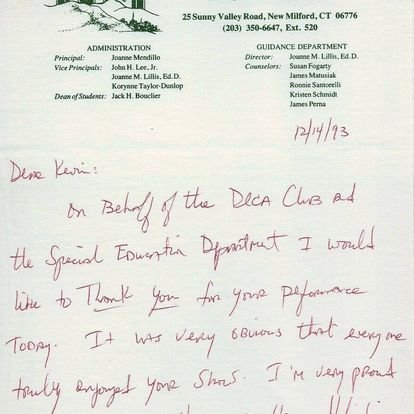 25 Sunny Valley Road, New Milford, CT 06776
(203) 350-6647, Ext. 520
ADMINISTRATION
Principal: Joanne Mendillo
Vice Principals: John H. Lee, Jr.
Joanne M. Lillis, Ed.D.
Korynne Taylor-Dunlop
Dean of Students: Jack H. Bouclier
GUIDANCE DEPARTMENT
Director: Joanne M. Lillis, Ed.D.
Counselors: Susan Fogarty
James Matusiak
Ronnie Santorelli
Kristen Schmidt
James Perna
12/14/93
Dear Kevin:
On Behalf of the DECA Club and
the Special Education Department I would
like to Thank You for your performance
Today. It was very obvious that everyone
truly enjoyed your show. I'm very proud